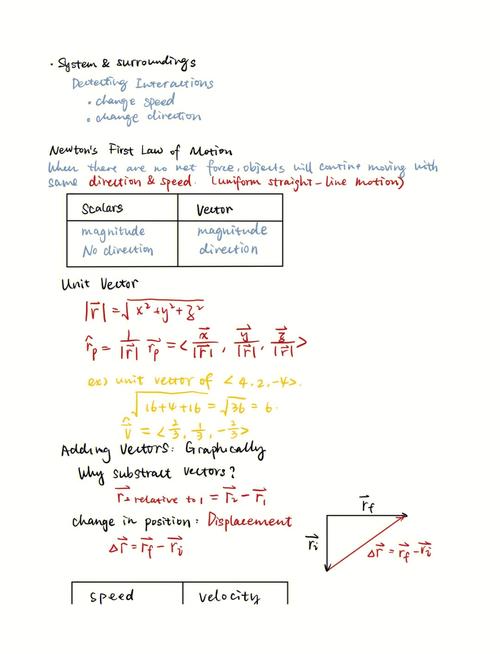 · System & surroundings
Detecting Interactions
· change speed
· change direction
Newton's First Law of Motion
When there are no net force, objects will contine moving with
same direction & speed. (uniform straight-line motion)
Scalars Vector
magnitude magnitude
No direction direction
Unit Vector
|r⃗| = √(x² + y² + z²)
r̂ₚ = 1/|r⃗| r⃗ₚ = < x⃗/|r⃗|, y⃗/|r⃗|, z⃗/|r⃗| >
ex) unit vector of < 4, 2, -4>.
√(16+4+16) = √36 = 6.
v̂ = < 2/3, 1/3, -2/3 >
Adding Vectors: Graphically
Why substract vectors?
r⃗₂ relative to 1 = r⃗₂ - r⃗₁
change in position: Displacement
Δr⃗ = r⃗f - r⃗i
r⃗f
r⃗i
Δr⃗ = r⃗f - r⃗i
speed velocity